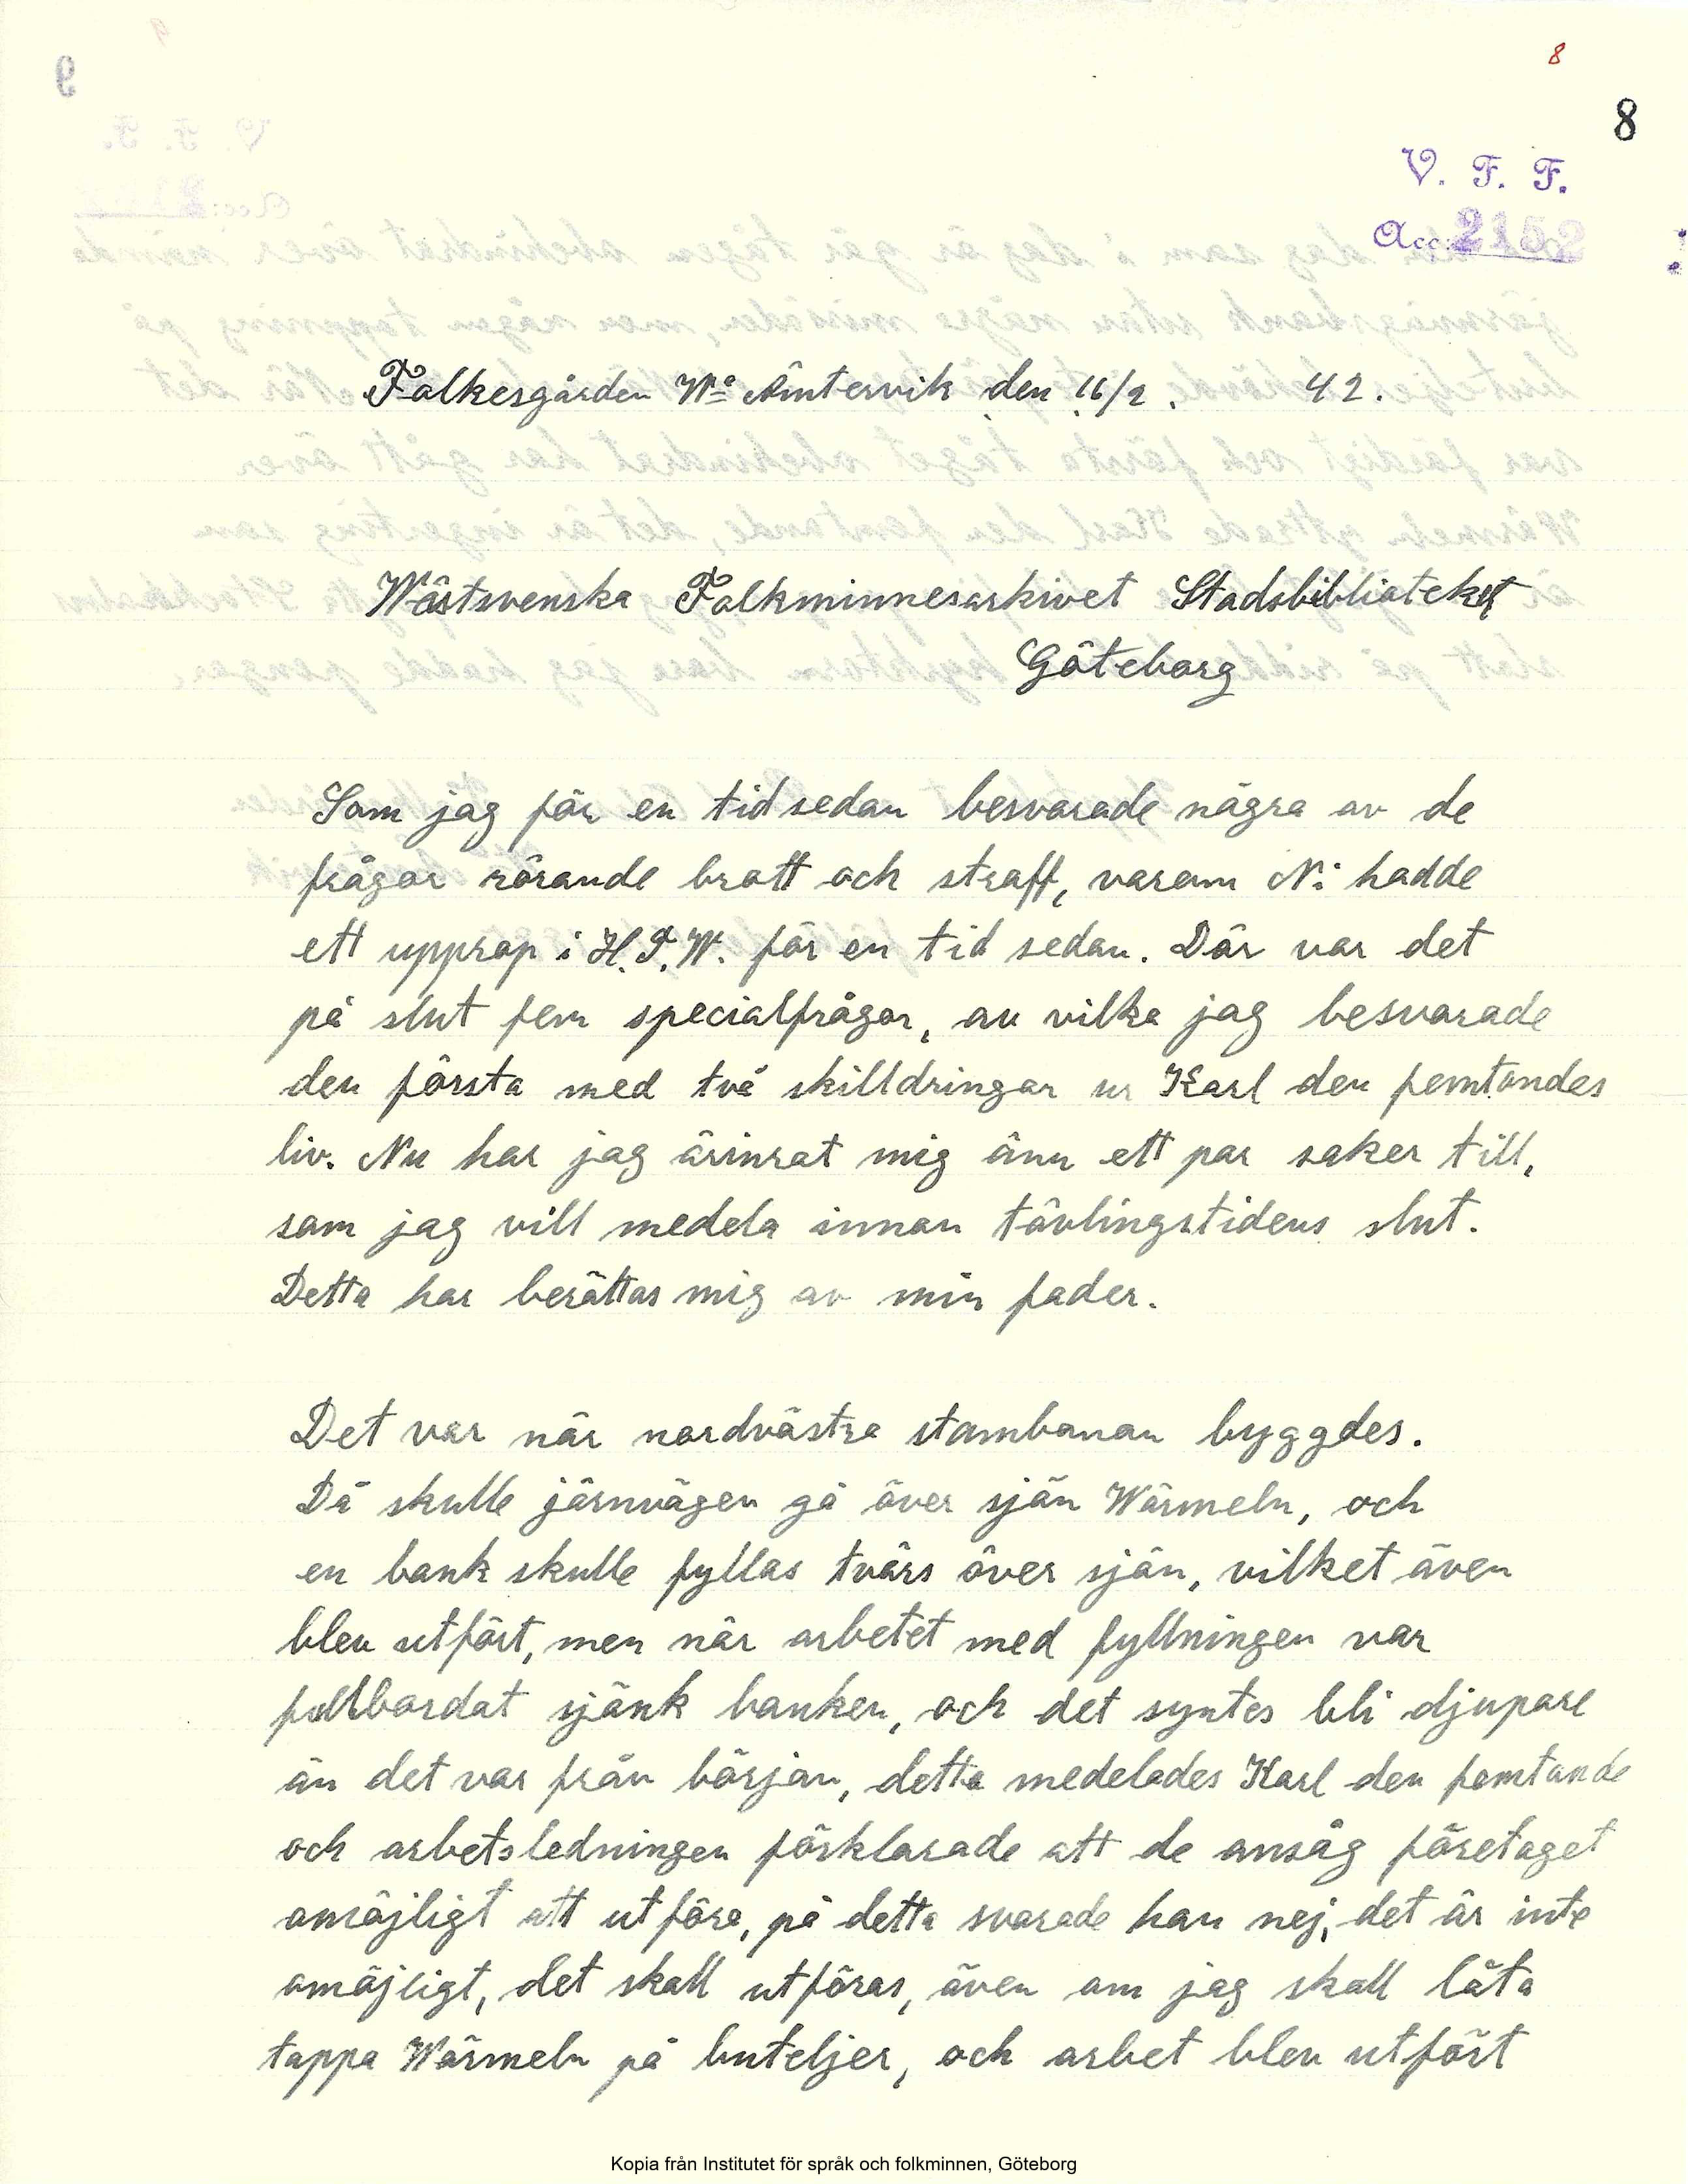 8
8
V. F. F.
Acc: 2152
Folkesgården Wa Ämtervik den 16/2. 42.
Wästsvenska Folkminnesarkivet Stadsbiblioteket
Göteborg
Som jag för en tid sedan besvarade några av de
frågor rörande brott och straff, varom Ni hadde
ett upprop i H.T.W. för en tid sedan. Där var det
på slut fem specialfrågor, av vilka jag besvarade
den första med två skilldringar ur Karl den femtondes
liv. Nu har jag ärinrat mig änn ett par saker till,
som jag vill medela innan tävlingstidens slut.
Detta har berättas mig av min fader.
Det var när nordvästra stambanan byggdes.
Då skulle järnvägen gå över sjön Wärmeln, och
en bank skulle fyllas tvärs över sjön, vilket även
blev utfört, men när arbetet med fyllningen var
fullbordat sjönk banken, och det syntes bli djupare
än det var från början, detta medelades Karl den femtonde
och arbetsledningen förklarade att de ansåg företaget
omöjligt att utföra, på detta svarade han nej, det är inte
omöjligt, det skall utföras, även om jag skall låta
tappa Wärmeln på buteljer, och arbet blev utfört
Kopia från Institutet för språk och folkminnen, Göteborg